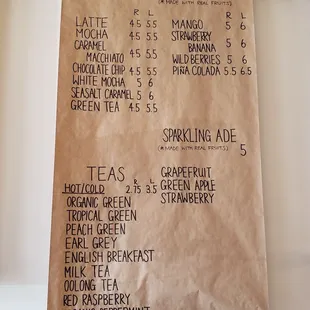 (*MADE WITH REAL FRUITS)
R L
LATTE 4.5 5.5
MOCHA 4.5 5.5
CARAMEL
MACCHIATO 4.5 5.5
CHOCOLATE CHIP 4.5 5.5
WHITE MOCHA 5 6
SEASALT CARAMEL 5 6
GREEN TEA 4.5 5.5
R L
MANGO 5 6
STRAWBERRY
BANANA 5 6
WILDBERRIES 5 6
PIÑA COLADA 5.5 6.5
SPARKLING ADE
(*MADE WITH REAL FRUITS) 5
GRAPEFRUIT
GREEN APPLE
STRAWBERRY
TEAS
R L
HOT/COLD 2.75 3.5
ORGANIC GREEN
TROPICAL GREEN
PEACH GREEN
EARL GREY
ENGLISH BREAKFAST
MILK TEA
OOLONG TEA
RED RASPBERRY
PEPPERMINT